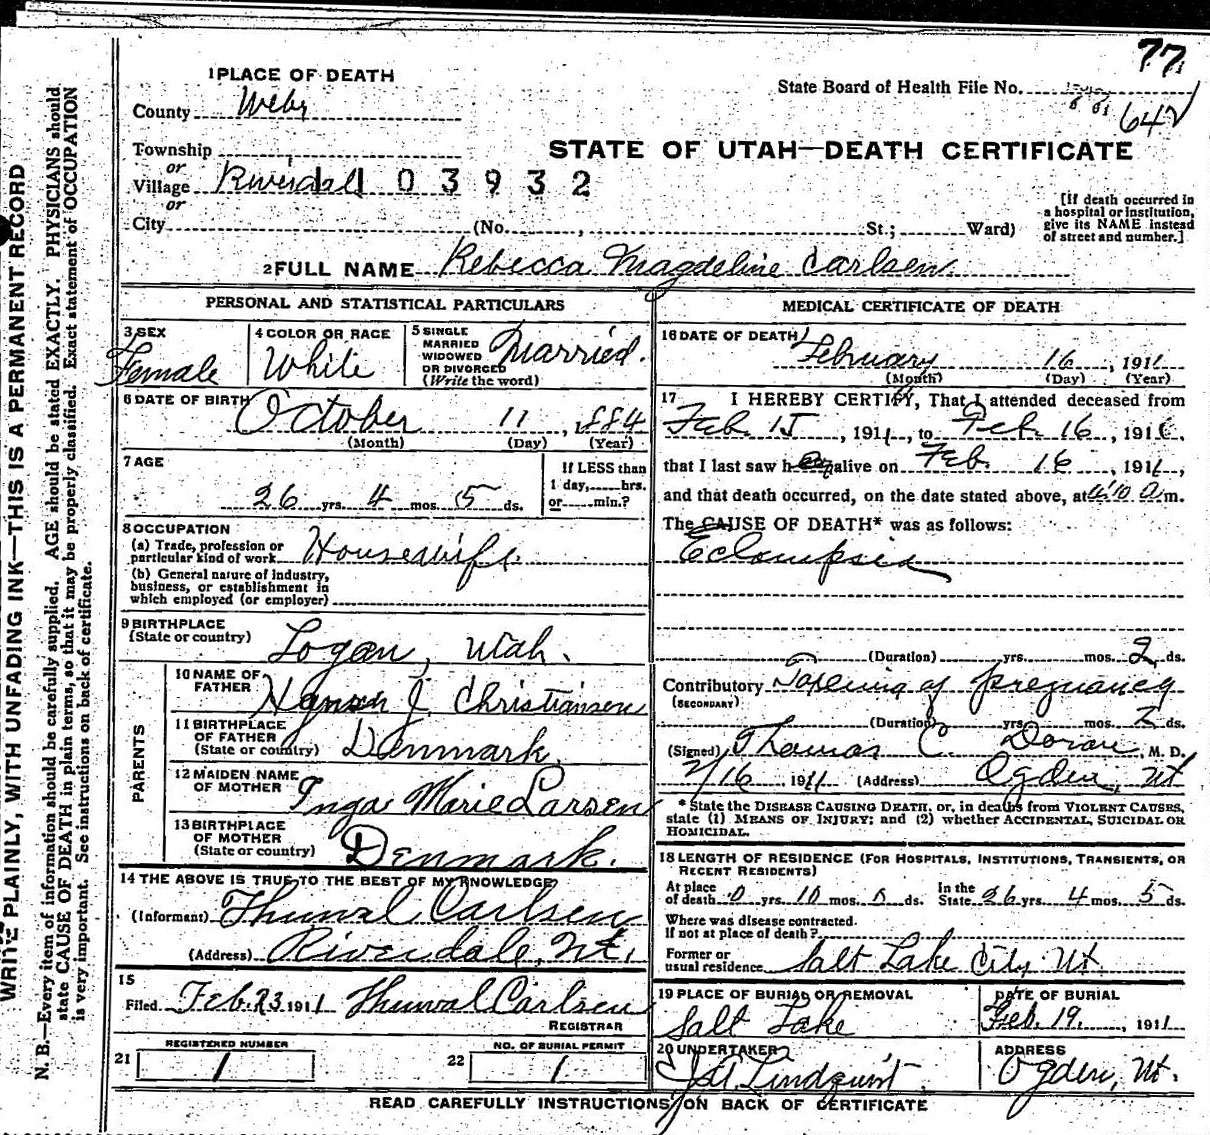 77
1 PLACE OF DEATH
State Board of Health File No.
642
County Weber
STATE OF UTAH—DEATH CERTIFICATE
Township
or
Village Riverdale 1 0 3 9 3 2
or
City (No. , St.; Ward)
[If death occurred in
a hospital or institution,
give its NAME instead
of street and number.]
2 FULL NAME Rebecca Magdeline Carlsen
PERSONAL AND STATISTICAL PARTICULARS
3 SEX
Female
4 COLOR OR RACE
White
5 SINGLE
MARRIED
WIDOWED
OR DIVORCED
(Write the word)
Married.
6 DATE OF BIRTH
October 11, 1884
(Month) (Day) (Year)
7 AGE
26 yrs. 4 mos. 5 ds.
If LESS than
1 day, hrs.
or min.?
8 OCCUPATION
(a) Trade, profession or
particular kind of work Housewife.
(b) General nature of industry,
business, or establishment in
which employed (or employer)
9 BIRTHPLACE
(State or country) Logan, Utah.
PARENTS
10 NAME OF
FATHER J. Christiansen
11 BIRTHPLACE
OF FATHER
(State or country) Denmark.
12 MAIDEN NAME
OF MOTHER Inga Marie Larsen
13 BIRTHPLACE
OF MOTHER
(State or country) Denmark.
14 THE ABOVE IS TRUE TO THE BEST OF MY KNOWLEDGE
(Informant) Thuval Carlsen
(Address) Riverdale, Ut.
15
Filed Feb. 23 1911 Thuval Carlsen
REGISTRAR
REGISTERED NUMBER
21 1
NO. OF BURIAL PERMIT
22 1
MEDICAL CERTIFICATE OF DEATH
16 DATE OF DEATH
February 16, 1911
(Month) (Day) (Year)
17 I HEREBY CERTIFY, That I attended deceased from
Feb. 15, 1911, to Feb. 16, 1911,
that I last saw her alive on Feb. 16, 1911,
and that death occurred, on the date stated above, at 4:10 a m.
The CAUSE OF DEATH* was as follows:
Eclampsia
(Duration) yrs. mos. 2 ds.
Contributory Toxemia of pregnancy
(SECONDARY)
(Duration) yrs. mos. 2 ds.
(Signed) Thomas C. Doran, M. D.
2/16 1911 (Address) Ogden, Ut
* State the DISEASE CAUSING DEATH, or, in deaths from VIOLENT CAUSES,
state (1) MEANS OF INJURY; and (2) whether ACCIDENTAL, SUICIDAL OR
HOMICIDAL.
18 LENGTH OF RESIDENCE (FOR HOSPITALS, INSTITUTIONS, TRANSIENTS, OR
RECENT RESIDENTS)
At place
of death 0 yrs. 10 mos. 0 ds.
In the
State 26 yrs. 4 mos. 5 ds.
Where was disease contracted.
If not at place of death?
Former or
usual residence Salt Lake City Ut.
19 PLACE OF BURIAL OR REMOVAL
Salt Lake
DATE OF BURIAL
Feb. 19, 1911
20 UNDERTAKER
Lindquist
ADDRESS
Ogden, Ut.
READ CAREFULLY INSTRUCTIONS ON BACK OF CERTIFICATE
WRITE PLAINLY, WITH UNFADING INK—THIS IS A PERMANENT RECORD
N. B.—Every item of information should be carefully supplied. AGE should be stated EXACTLY. PHYSICIANS should
state CAUSE OF DEATH in plain terms, so that it may be properly classified. Exact statement of OCCUPATION
is very important. See instructions on back of certificate.